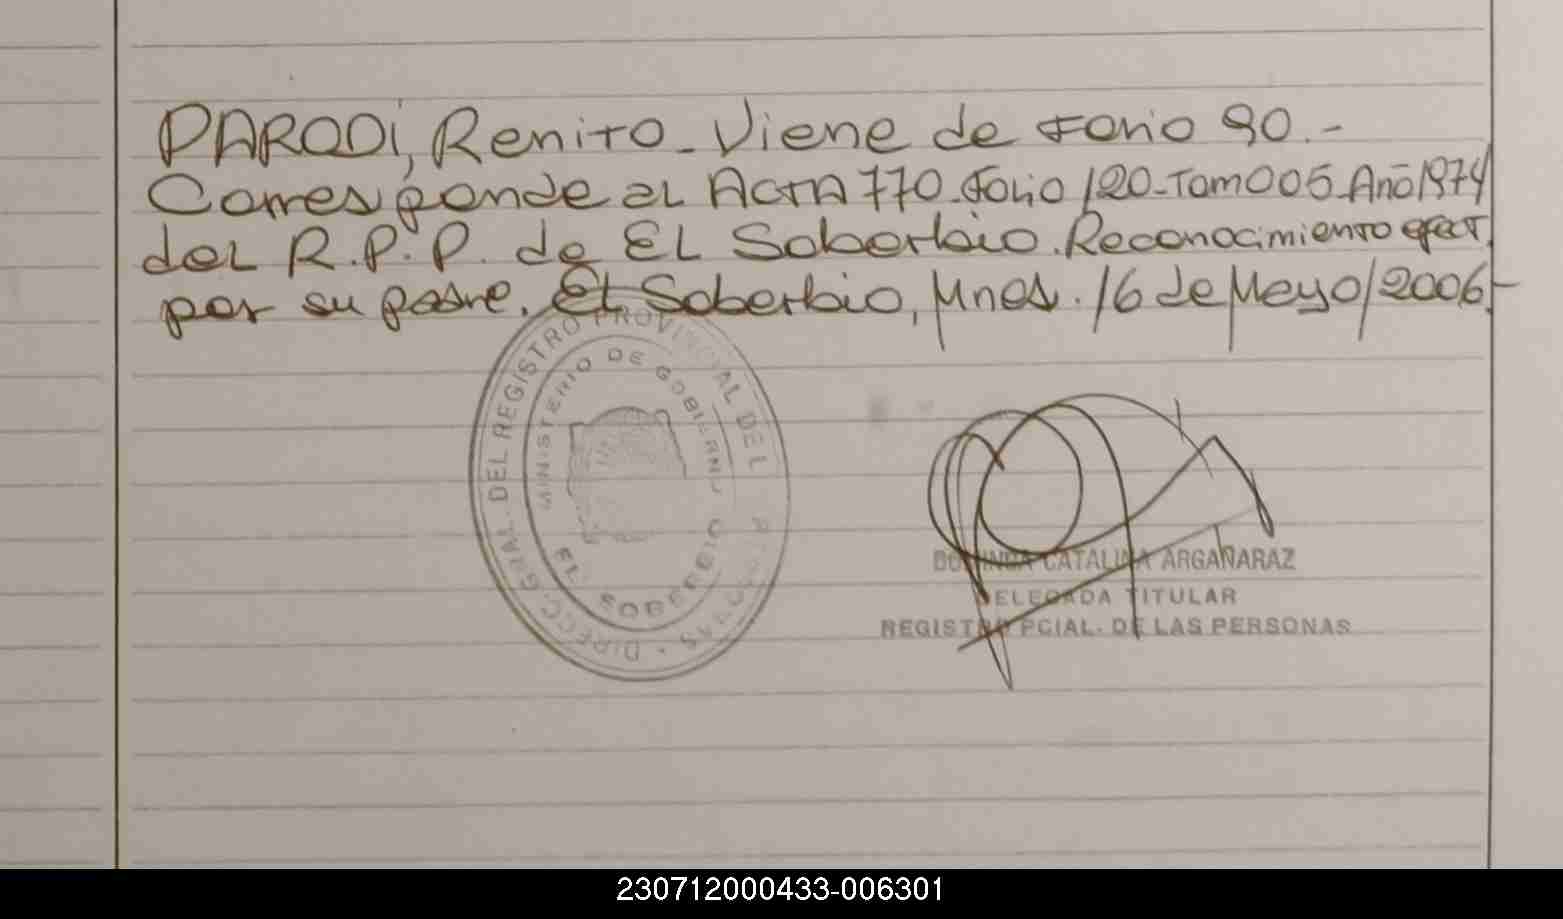 PARODI, Renito - Viene de Folio 90.-
Corresponde al ACTA 770 - Folio 120 - Tomo 05 - Año 1974
del R.P.P. de EL Soberbio. Reconocimiento efect.
por su padre. El Soberbio, Mnes. 16 de Mayo/2006.-
DIRECC. GRAL. DEL REGISTRO PROVINCIAL DEL
MINISTERIO DE GOBIERNO
EL SOBERBIO
CATALINA ARGAÑARAZ
DELEGADA TITULAR
REGISTRO PCIAL. DE LAS PERSONAS
230712000433-006301